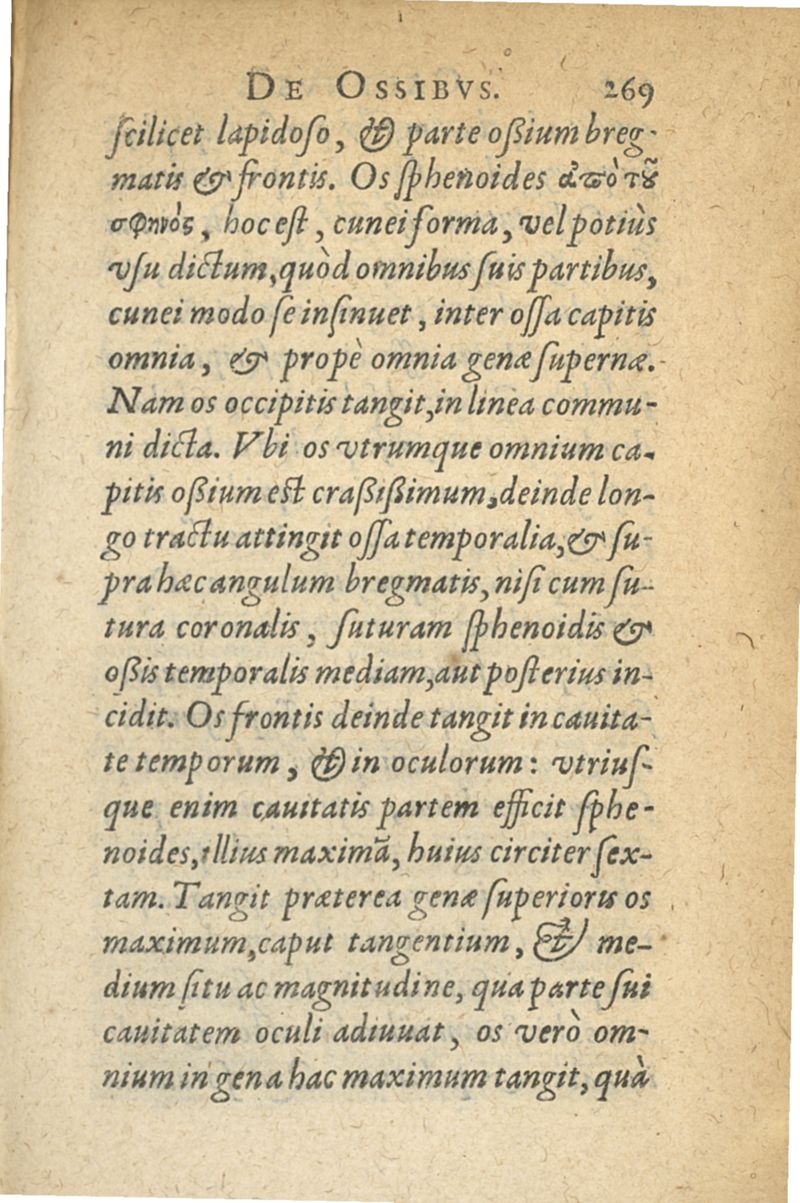 DE OSSIBVS. 269
ſcilicet lapidoſo, & parte oßium breg-
matis & frontis. Os ſphenoides ἀπὸ τοῦ
σφηνὸς, hoc eſt, cuneiforma, vel potiùs
vſu dictum, quòd omnibus ſuis partibus,
cunei modo ſe inſinuet, inter oſſa capitis
omnia, & propè omnia genæ ſupernæ.
Nam os occipitis tangit, in linea commu-
ni dicta. Vbi os vtrumque omnium ca-
pitis oßium eſt craßißimum, deinde lon-
go tractu attingit oſſa temporalia, & ſu-
pra hæc angulum bregmatis, niſi cum ſu-
tura coronalis, ſuturam ſphenoidis &
oßis temporalis mediam, aut poſterius in-
cidit. Os frontis deinde tangit in cauita-
te temporum, & in oculorum: vtriuſ-
que enim cauitatis partem efficit ſphe-
noides, illius maximã, huius circiter ſex-
tam. Tangit præterea genæ ſuperioris os
maximum, caput tangentium, & me-
dium ſitu ac magnitudine, qua parte ſui
cauitatem oculi adiuuat, os verò om-
nium in gena hac maximum tangit, quà